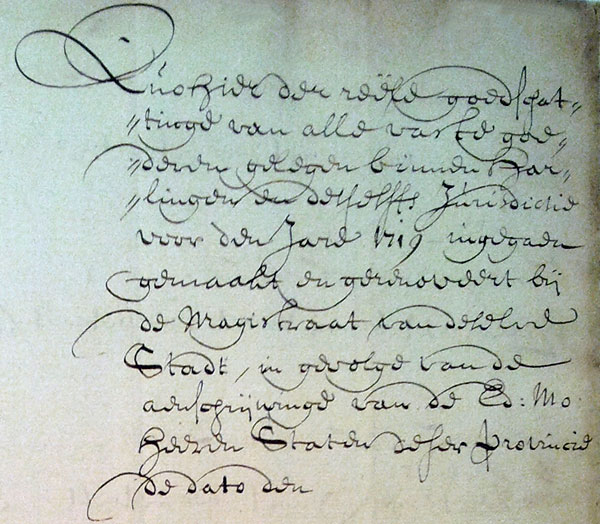 Quohier der reële goedschat-
„tinge van alle vaste goe-
„deren gelegen binnen Har-
„lingen en deszelffs Jurisdictie
voor den Jare 1719 ingegaen
gemaakt en gerenoveert bij
de Magistraat van deselve
Stadt, in gevolge van de
aenschrijvinge van de Ed: Mo:
Heeren Staten deser Provincie
de dato den